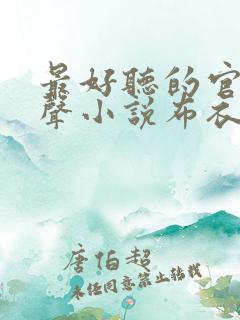 最好聽的官
聲小說布衣
唐伯超
未经同意禁止转载